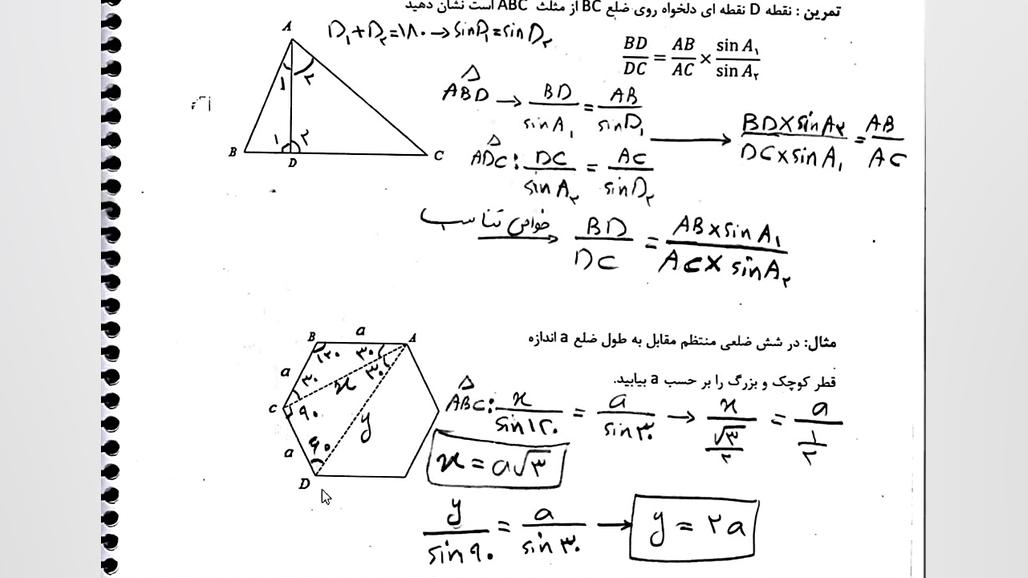 تمرین : نقطه D نقطه ای دلخواه روی ضلع BC از مثلث ABC است نشان دهید
BD/DC = AB/AC × sin A₁/sin A₂
D₁+D₂=۱۸۰ → sinD₁=sinD₂
A
۱ ۲
۱ ۲
B D C
ABD → BD/sinA₁ = AB/sinD₁
ADC: DC/sinA₂ = AC/sinD₂
→ BD×sinA₂/DC×sinA₁ = AB/AC
خواص تناسب → BD/DC = AB×sinA₁/AC×sinA₂
مثال: در شش ضلعی منتظم مقابل به طول ضلع a اندازه
قطر کوچک و بزرگ را بر حسب a بیابید.
B a A
۱۲۰ ۳۰
a ۳۰ x ۳۰
C ۹۰ y
a ۶۰
D
ABC: x/sin۱۲۰ = a/sin۳۰ → x/(√۳/۲) = a/(۱/۲)
x = a√۳
y/sin۹۰ = a/sin۳۰ → y = ۲a